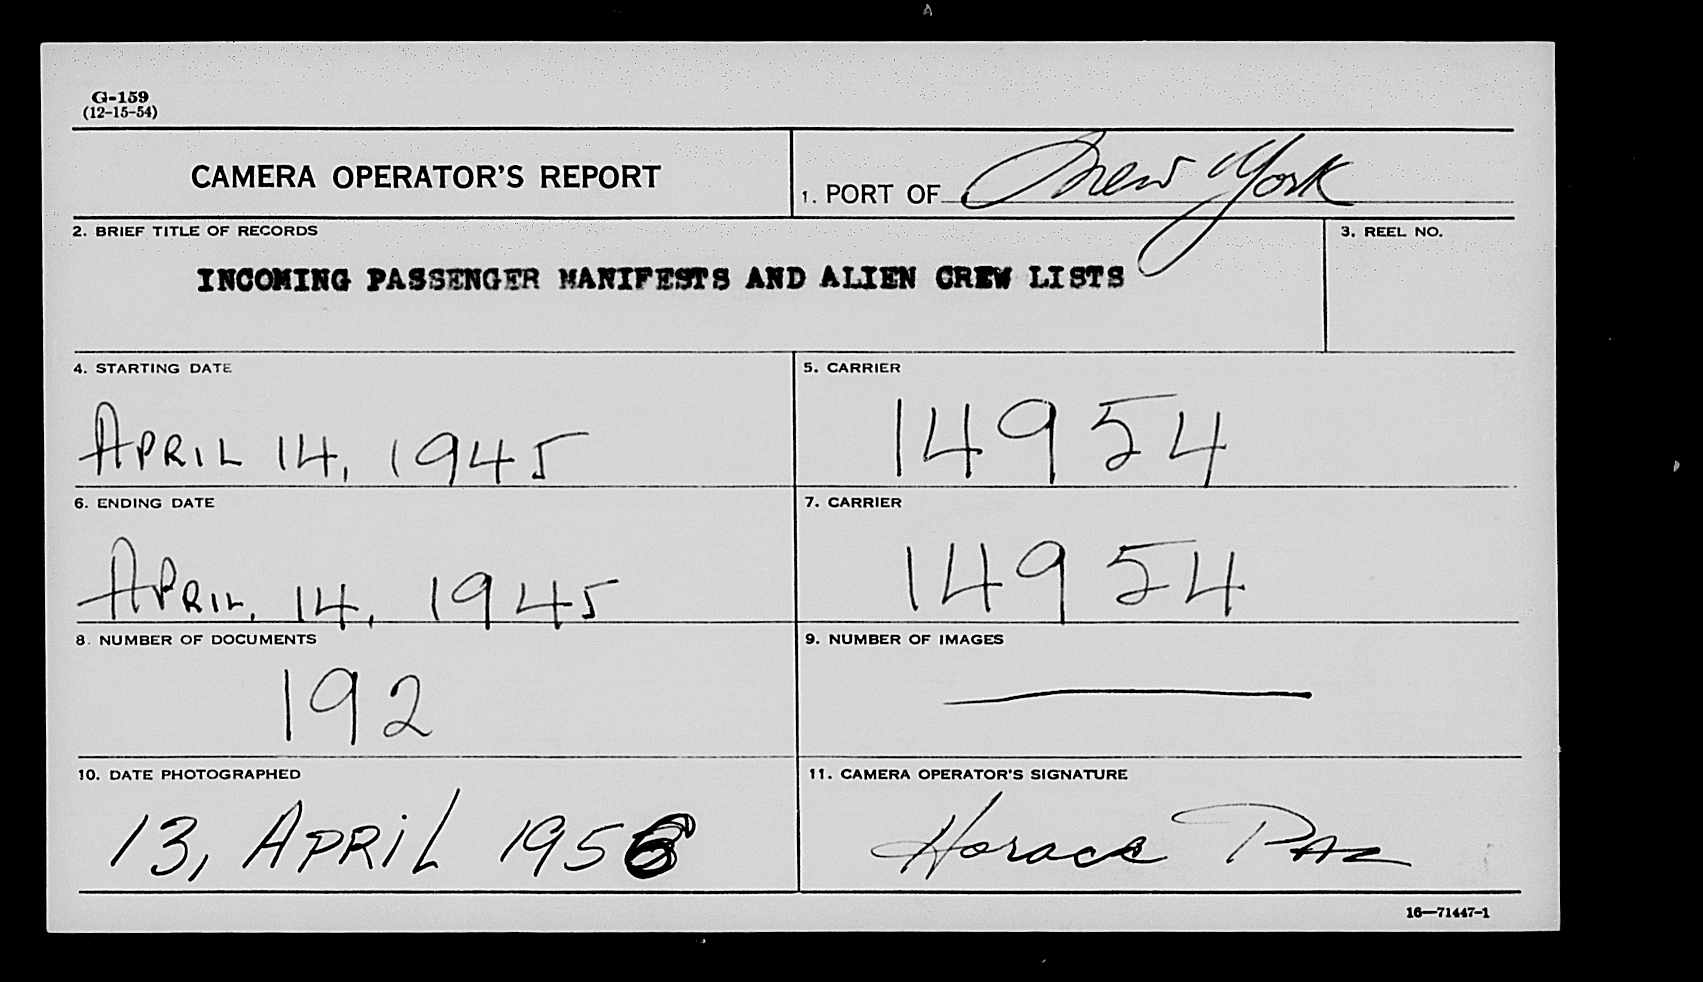 G-159
(12-15-54)
CAMERA OPERATOR'S REPORT
1. PORT OF New York
2. BRIEF TITLE OF RECORDS
3. REEL NO.
INCOMING PASSENGER MANIFESTS AND ALIEN CREW LISTS
4. STARTING DATE
5. CARRIER
APRIL 14, 1945
14954
6. ENDING DATE
7. CARRIER
APRIL, 14, 1945
14954
8. NUMBER OF DOCUMENTS
9. NUMBER OF IMAGES
192
10. DATE PHOTOGRAPHED
11. CAMERA OPERATOR'S SIGNATURE
13, APRIL
Horace Paz
16—71447-1